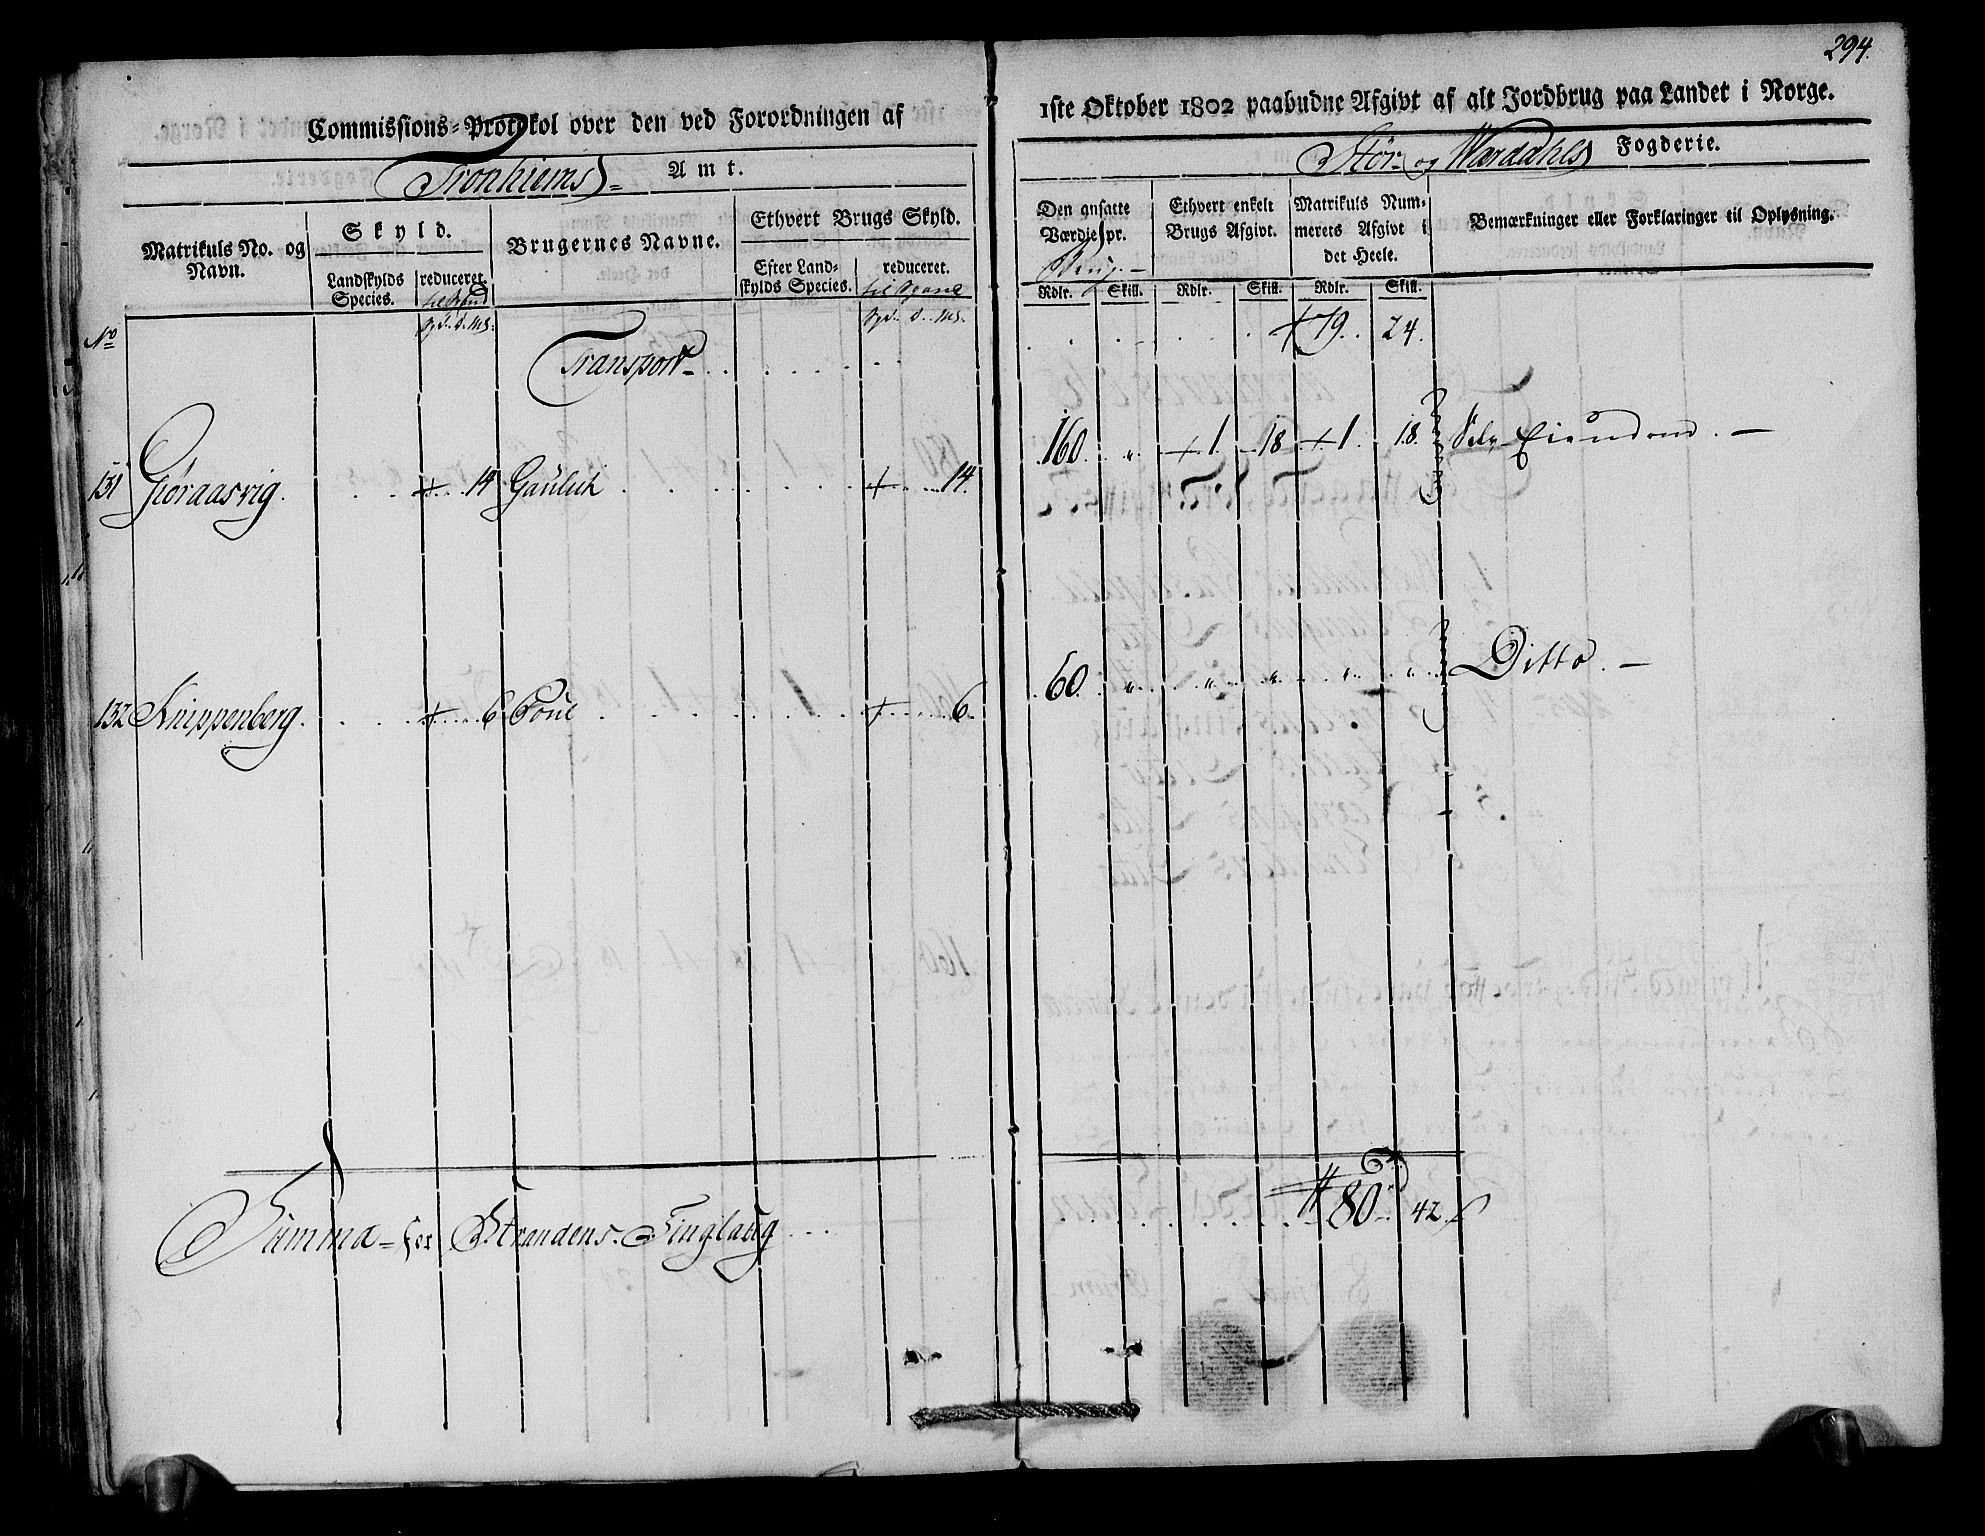 294.
Commissions-Protokol over den ved Forordningen af 1ste Oktober 1802 paabudne Afgivt af alt Jordbrug paa Landet i Norge.
Tronhiems Amt. Stør- og Værdahls Fogderie.
Matrikuls No. og Navn.
Skyld.
Landskylds Species.
reduceret.
Brugernes Navne.
Ethvert Brugs Skyld.
Efter Landskylds Species.
reduceret.
Den ansatte Værdie pr.
Ethvert enkelt Brugs Afgivt.
Matrikuls Nummerets Afgivt i det Heele.
Bemærkninger eller Forklaringer til Oplysning.
Rdlr. Skill. Rdlr. Skill. Rdlr. Skill.
No
Transport 79. 24.
131 Giøraasvig. 14 14. 160. " 1 18 1. 18. Selv Eiendom.
132 Knippenberg. 6 6. 60. " " " " " Ditto.
Summa for Strandens Tinglaug 80 42 ß